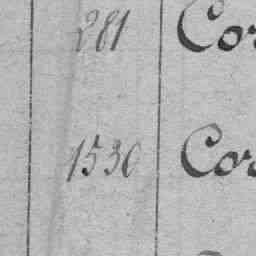 281 Cor
1530 Cor